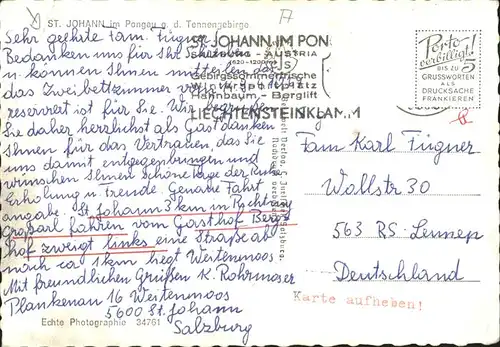 ST. JOHANN im Pongau g. d. Tennengebirge
Sehr geehrte Fam. Fügner!
Bedanken uns für Ihr
u. können Ihnen mitteilen daß
das Zweibettzimmer
reserviert ist für Sie. Wir begrüßen
Sie daher herrlichst als Gast danken
Ihnen für das Vertrauen, das Sie
uns damit entgegenbringen und
wünschen Ihnen schöne Tage der Ruhe
Erholung u. Freude. Genaue Fahrt
angabe. St. Johann 3 km in Richtung
Großarl fahren vom Gasthof Berg
hof zweigt links eine Straße ab
nach ca 1km liegt Westenmoos
Mit freundlichen Grüßen K. Rohrmoser
Plankenau 16 Westenmoos
5600 St. Johann
Salzburg
Echte Photographie 34761
ST. JOHANN IM PON
SALZBURG - AUSTRIA
Gebirgssommerfrische
Wintersportplatz
Hahnbaum - Berglift
LIECHTENSTEINKLAMM
Porto
verbilligt!
BIS ZU 5
GRUSSWORTEN
ALS
DRUCKSACHE
FRANKIEREN
Fam Karl Fügner
Wallstr 30
563 RS-Lennep
Deutschland
Karte aufheben!